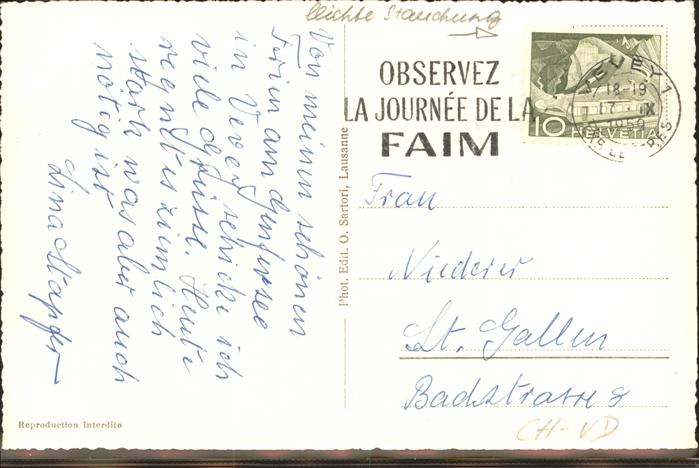 leichte Stauchung
Von meinen schönen
Ferien am Genfersee
in Vevey schicke ich
viele Grüsse. Heute
regnet es ziemlich
stark was aber auch
nötig ist.
Lina Stapfer
Reproduction Interdite
Phot. Edit. O. Sartori, Lausanne
OBSERVEZ
LA JOURNÉE DE LA
FAIM
VEVEY 1
18-19
17. IX
1959
10 HELVETIA
Frau
Niederer
St. Gallen
Badstrasse 8
CH-VD